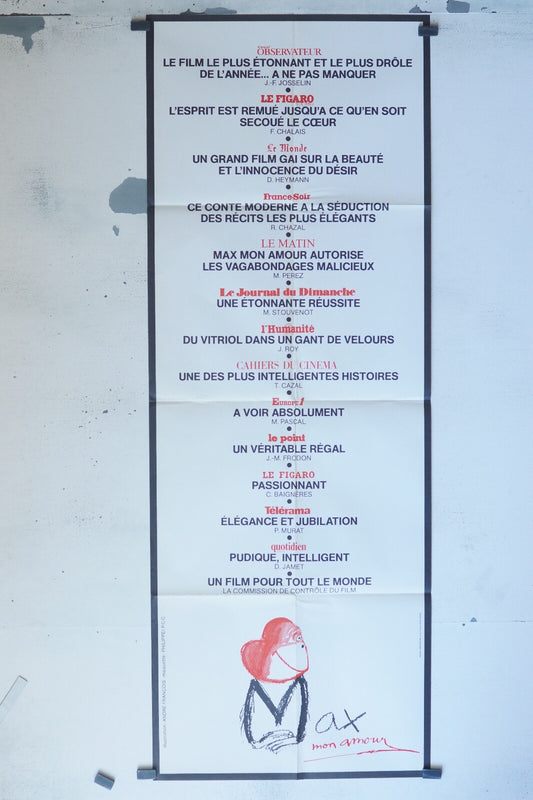 OBSERVATEUR
LE FILM LE PLUS ÉTONNANT ET LE PLUS DRÔLE
DE L'ANNÉE... A NE PAS MANQUER
J.-F. JOSSELIN
LE FIGARO
L'ESPRIT EST REMUÉ JUSQU'A CE QU'EN SOIT
SECOUÉ LE CŒUR
F. CHALAIS
Le Monde
UN GRAND FILM GAI SUR LA BEAUTÉ
ET L'INNOCENCE DU DÉSIR
D. HEYMANN
France-Soir
CE CONTE MODERNE A LA SÉDUCTION
DES RÉCITS LES PLUS ÉLÉGANTS
R. CHAZAL
LE MATIN
MAX MON AMOUR AUTORISE
LES VAGABONDAGES MALICIEUX
M. PEREZ
Le Journal du Dimanche
UNE ÉTONNANTE RÉUSSITE
M. STOUVENOT
l'Humanité
DU VITRIOL DANS UN GANT DE VELOURS
J. ROY
CAHIERS DU CINEMA
UNE DES PLUS INTELLIGENTES HISTOIRES
T. CAZAL
EUROPE 1
A VOIR ABSOLUMENT
M. PASCAL
le point
UN VÉRITABLE RÉGAL
J.-M. FRODON
LE FIGARO
PASSIONNANT
C. BAIGNÈRES
Télérama
ÉLÉGANCE ET JUBILATION
P. MURAT
quotidien
PUDIQUE, INTELLIGENT
D. JAMET
UN FILM POUR TOUT LE MONDE
LA COMMISSION DE CONTRÔLE DU FILM
illustration : ANDRÉ FRANÇOIS maquette : PHILIPPE
Max
mon amour